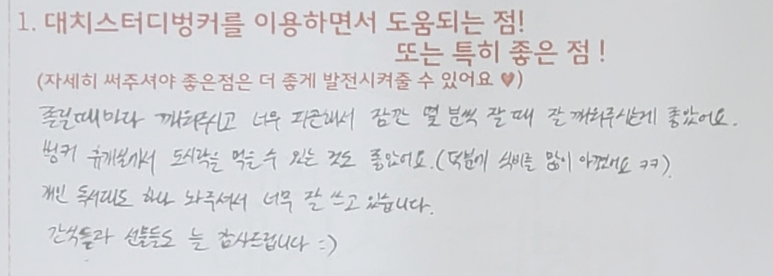 1. 대치스터디벙커를 이용하면서 도움되는 점!
또는 특히 좋은 점 !
(자세히 써주셔야 좋은점은 더 좋게 발전시켜줄 수 있어요 ♥)
졸릴때마다 깨워주시고 너무 피곤해서 잠깐 몇 분씩 잘 때 잘 깨워주시는게 좋았어요.
벙커 휴게실에서 도시락을 먹을 수 있는 것도 좋았어요.(덕분에 식비를 많이 아꼈어요 ㅋㅋ).
개인 독서대도 하나 놔주셔서 너무 잘 쓰고 있습니다.
간식들과 선물들도 늘 감사드립니다 :)